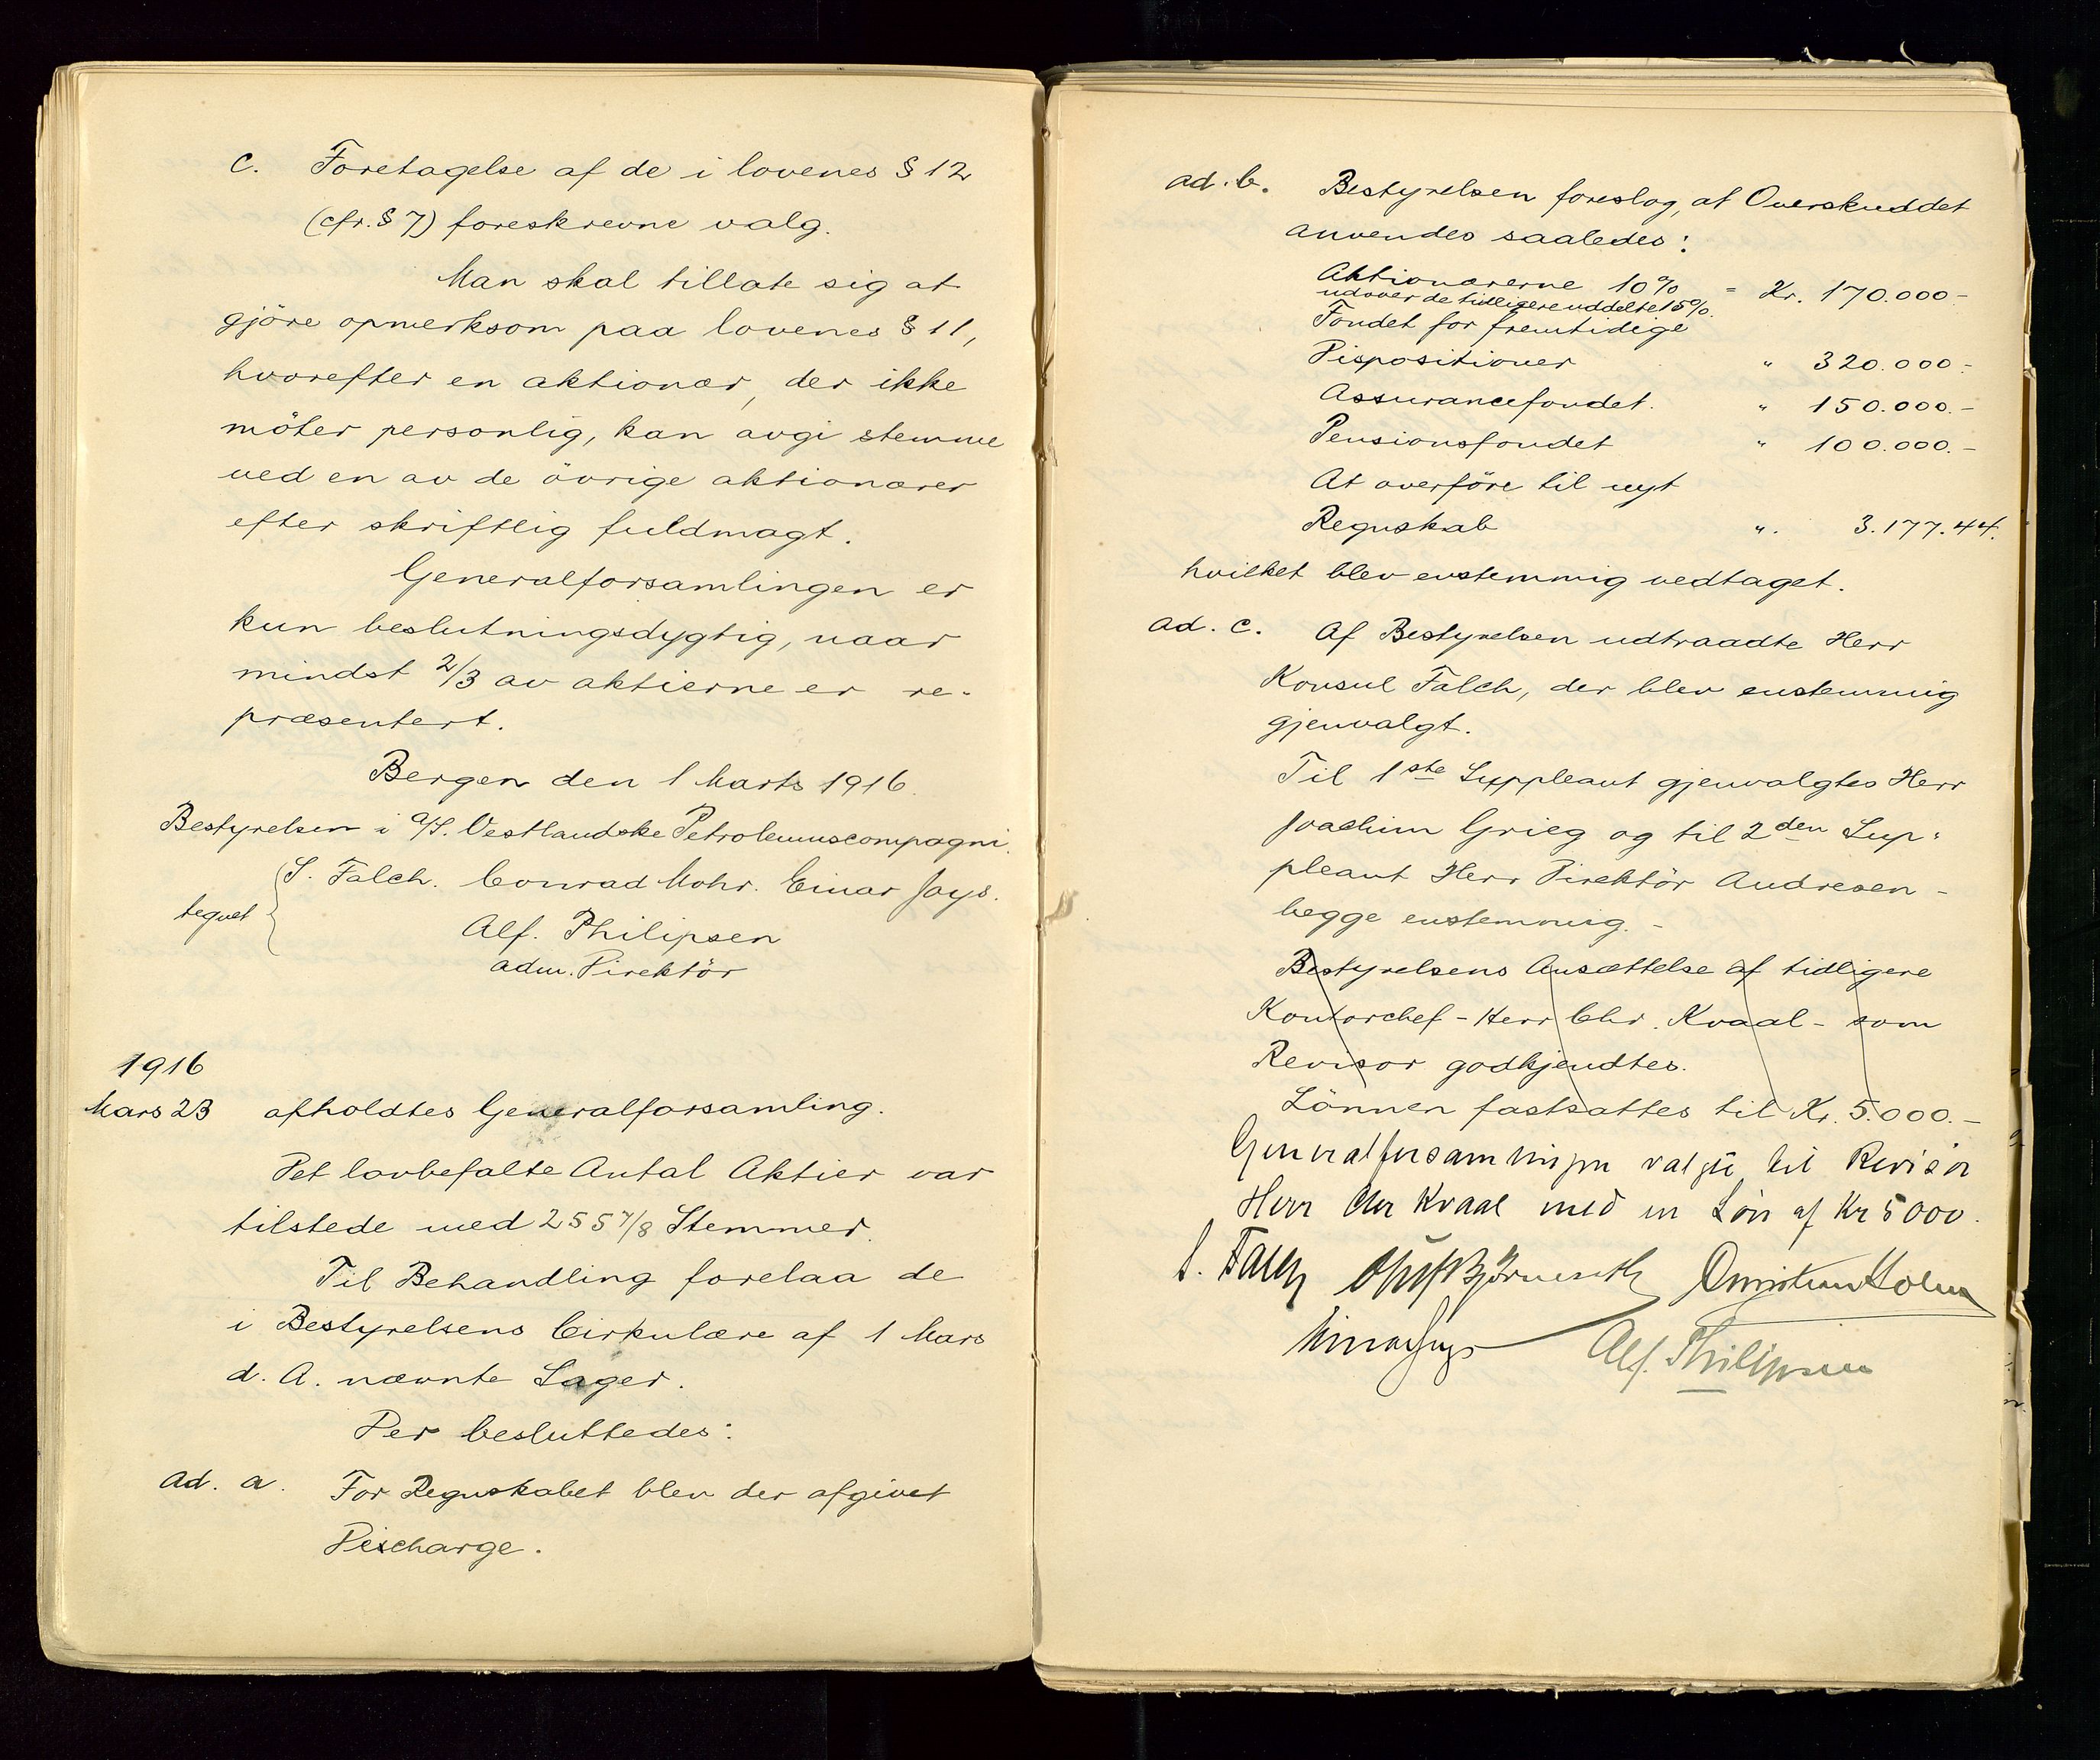 c. Foretagelse af de i lovenes § 12
(cfr. § 7) foreskrevne valg.
Man skal tillate sig at
gjöre opmerksom paa lovenes § 11,
hvorefter en aktionær, der ikke
möter personlig, kan avgi stemme
ved en av de övrige aktionærer
efter skriftlig fuldmagt.
Generalforsamlingen er
kun beslutningsdygtig, naar
mindst 2/3 av aktierne er re-
præsentert.
Bergen den 1 Marts 1916.
Bestyrelsen i A/S. Vestlandske Petroleumscompagni.
S. Falch. Conrad Mohr. Einar Jays.
tegnet
Alf. Philipsen
adm. Direktör
1916
Mars 23 afholdtes Generalforsamling.
Det lovbefalte Antal Aktier var
tilstede med 255 7/8 Stemmer.
Til Behandling forelaa de
i Bestyrelsens Cirkulære af 1 Mars
d. A. nævnte Sager.
Der besluttedes:
ad. a. For Regnskabet blev der afgivet
Discharge.
ad. b. Bestyrelsen foreslog, at Overskuddet
anvendes saaledes:
Aktionærerne 10% = Kr. 170.000-
udover de tidligere uddelte 15%.
Fondet for fremtidige
Dispositioner " 320.000-
Assurancefondet. " 150.000.-
Pensionsfondet " 100.000.-
At overföre til nyt
Regnskab ". 3.177.44.
hvilket blev enstemmig vedtaget.
ad. c. Af Bestyrelsen udtraadte Herr
Konsul Falch, der blev enstemmig
gjenvalgt.
Til 1ste Suppleant gjenvalgtes Herr
Joachim Grieg og til 2den Sup-
pleant Herr Direktör Andresen -
begge enstemmig. -
Bestyrelsens Ansættelse af tidligere
Kontorchef - Herr Chr. Kvaal - som
Revisor godkjendtes.
Lönnen fastsattes til Kr. 5.000.-
Generalforsamlingen valgte til Revisor
Herr Chr Kvaal med en Lön af Kr 5000.
S. Falch Christian Holm
Einar Jays Alf. Philipsen